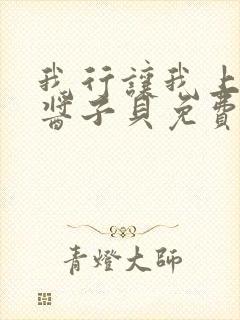 我行讓我上
醬子貝免費
青燈大師